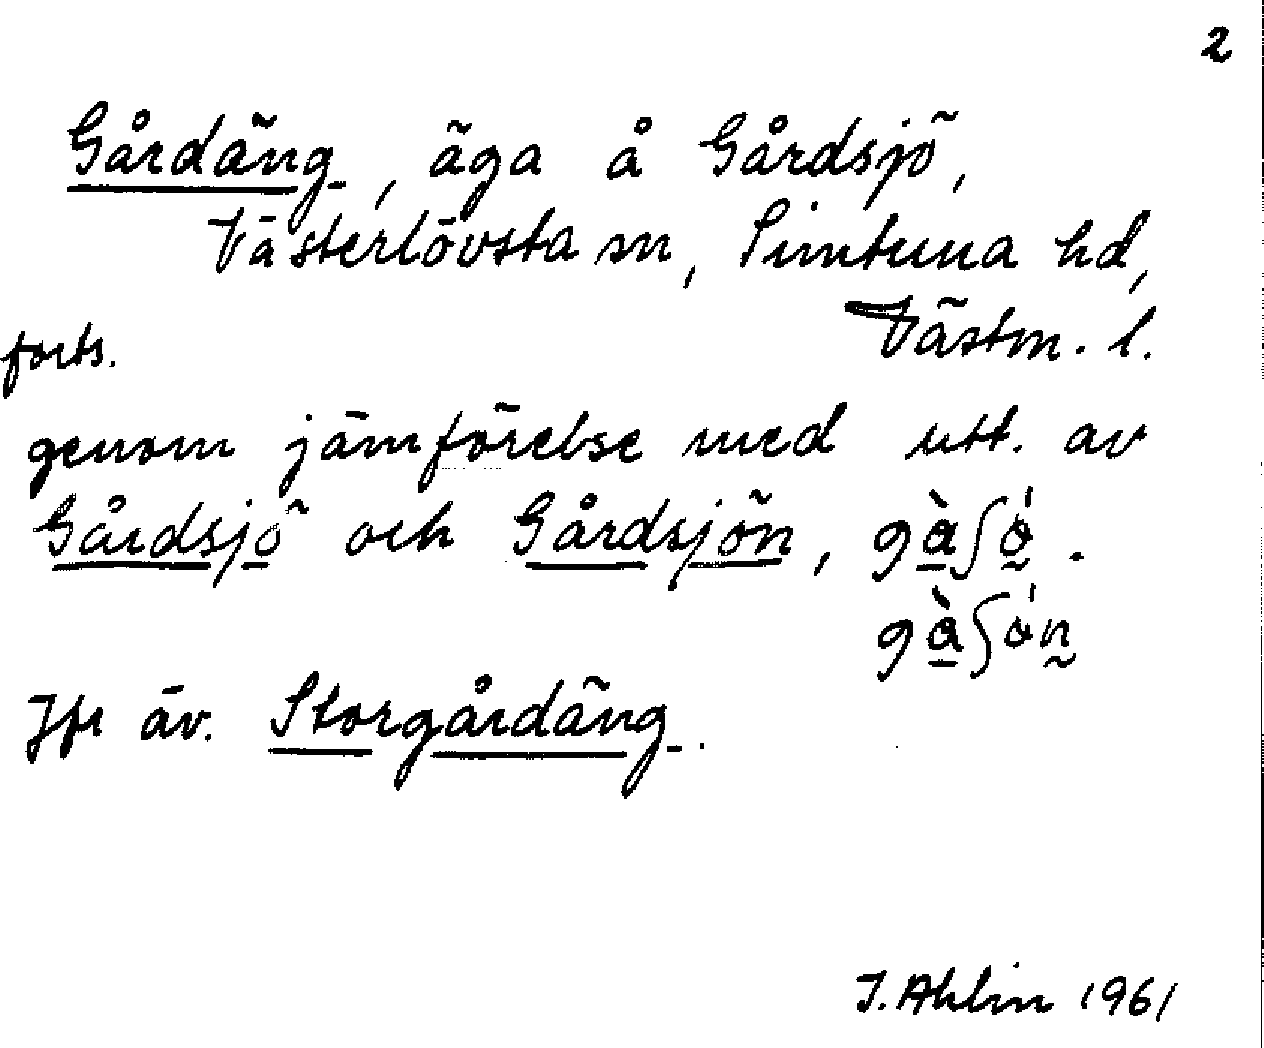 2
Gårdäng, äga å Gårdsjö,
Västerlövsta sn, Simtuna hd,
Västm. l.
forts.
genom jämförelse med utt. av
Gårdsjö och Gårdsjön,
Jfr äv. Storgårdäng.
J. Ahlin 1961